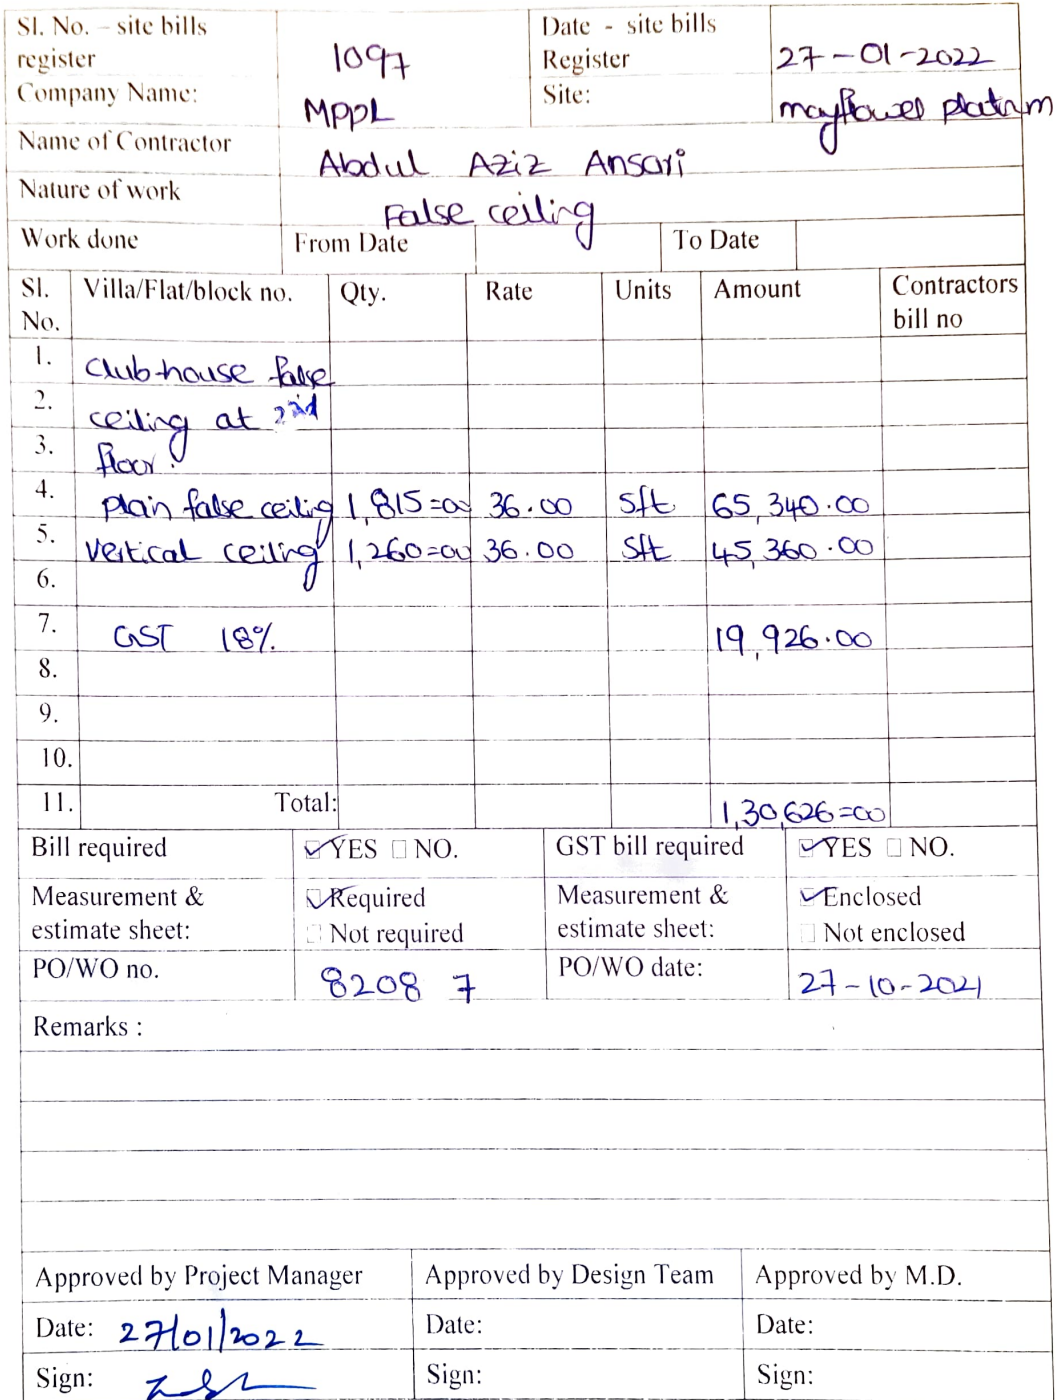 Sl. No. – site bills register 1097 Date - site bills Register 27-01-2022
Company Name: MPPL Site: mayflower platinm
Name of Contractor Abdul Aziz Ansari
Nature of work False ceiling
Work done From Date To Date
Sl. No. Villa/Flat/block no. Qty. Rate Units Amount Contractors bill no
1. Club-house false
2. ceiling at 2nd
3. floor.
4. plain false ceiling 1,815=00 36.00 sft 65,340.00
5. vertical ceiling 1,260=00 36.00 sft 45,360.00
6.
7. GST 18% 19,926.00
8.
9.
10.
11. Total: 1,30,626=00
Bill required YES NO. GST bill required YES NO.
Measurement & estimate sheet: Required Not required Measurement & estimate sheet: Enclosed Not enclosed
PO/WO no. 8208 7 PO/WO date: 27-10-2021
Remarks :
Approved by Project Manager Approved by Design Team Approved by M.D.
Date: 27/01/2022 Date: Date:
Sign: Sign: Sign: